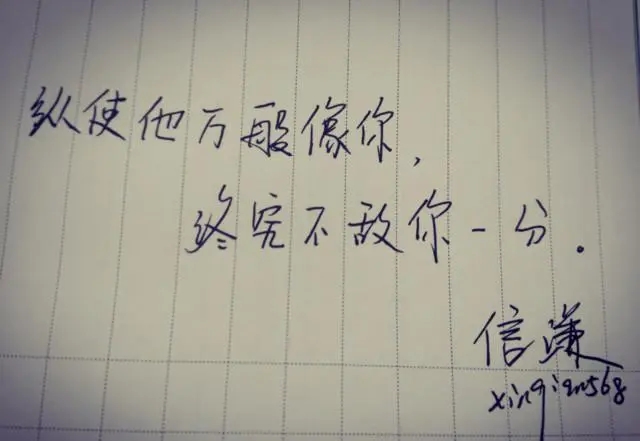 纵使他万般像你，
终究不敌你一分．
信谦
xinqian568